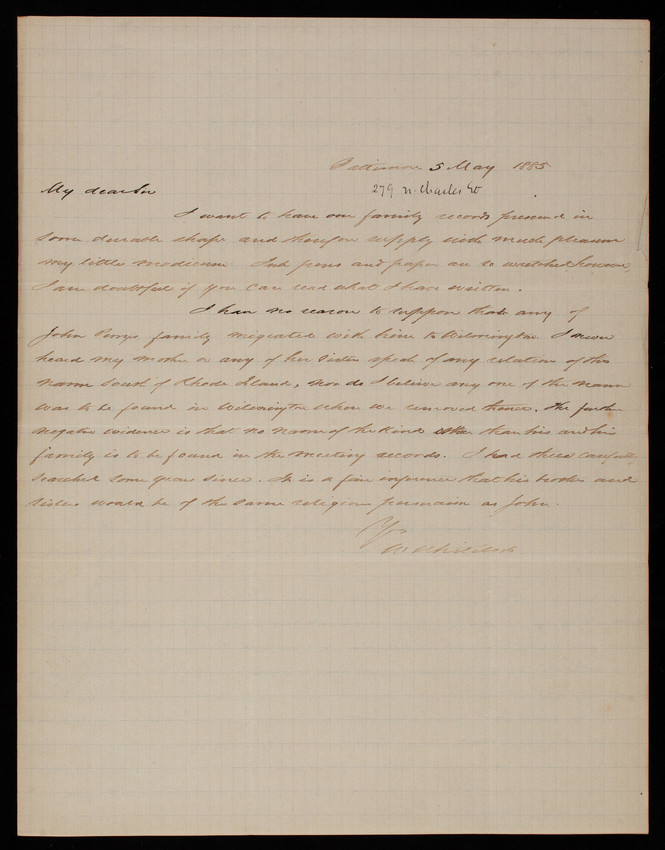 Baltimore 5 May 1885
279 N. Charles St
My dear Sir
I want to have our family records preserved in
some durable shape and therefore supply with much pleasure
my little modicum. Ink pens and paper are so wretched however,
I am doubtful if you can read what I have written.
I have no reason to suppose that any of
John Perrys family migrated with him to Wilmington. I never
heard my mother or any of her sisters speak of any relation of the
name South of Rhode Island, nor do I believe any one of the name
was to be found in Wilmington when we removed thence. The further
negative evidence is that no name of the kind other than his and his
family is to be found in the meeting records. I had these carefully
searched some years since. It is a fair inference that his brother and
sisters would be of the same religious persuasion as John.